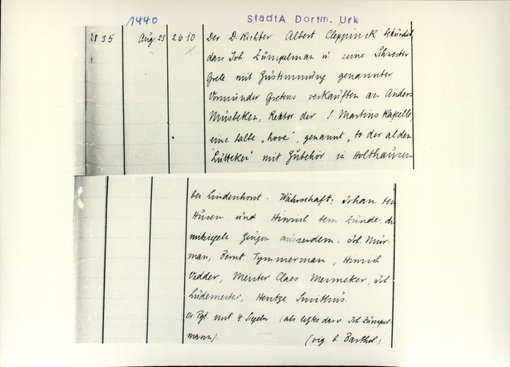 1440
StadtA Dortm. Urk
2835 Aug 23 2610 Der D. Richter Albert Cleppinck bekundet,
dass Joh. Zümpelman u. seine Schwester
Grete mit Zustimmung genannter
Vormünder Gretens verkauften an Anders
Müsteken, Rektor der S. Martins Kapelle
eine halbe "hove", genannt "to der alden
Lütteken" mit Zubehör in Holthausen
bei Lindenhorst. Währschaft: Johan
Hüsen und Hinrich
Zeugen ausserdem: Joh. Mür-
man, Bernt Tymmerman, Hinrich
Vidder, Meister Claes Menneker, Joh.
Lüdemester, Hentze Smithüs
Or. Pgt. mit 4 Siegeln (als letztes das v. Joh. Zümpel-
mann). (vig. b. Barthol.)